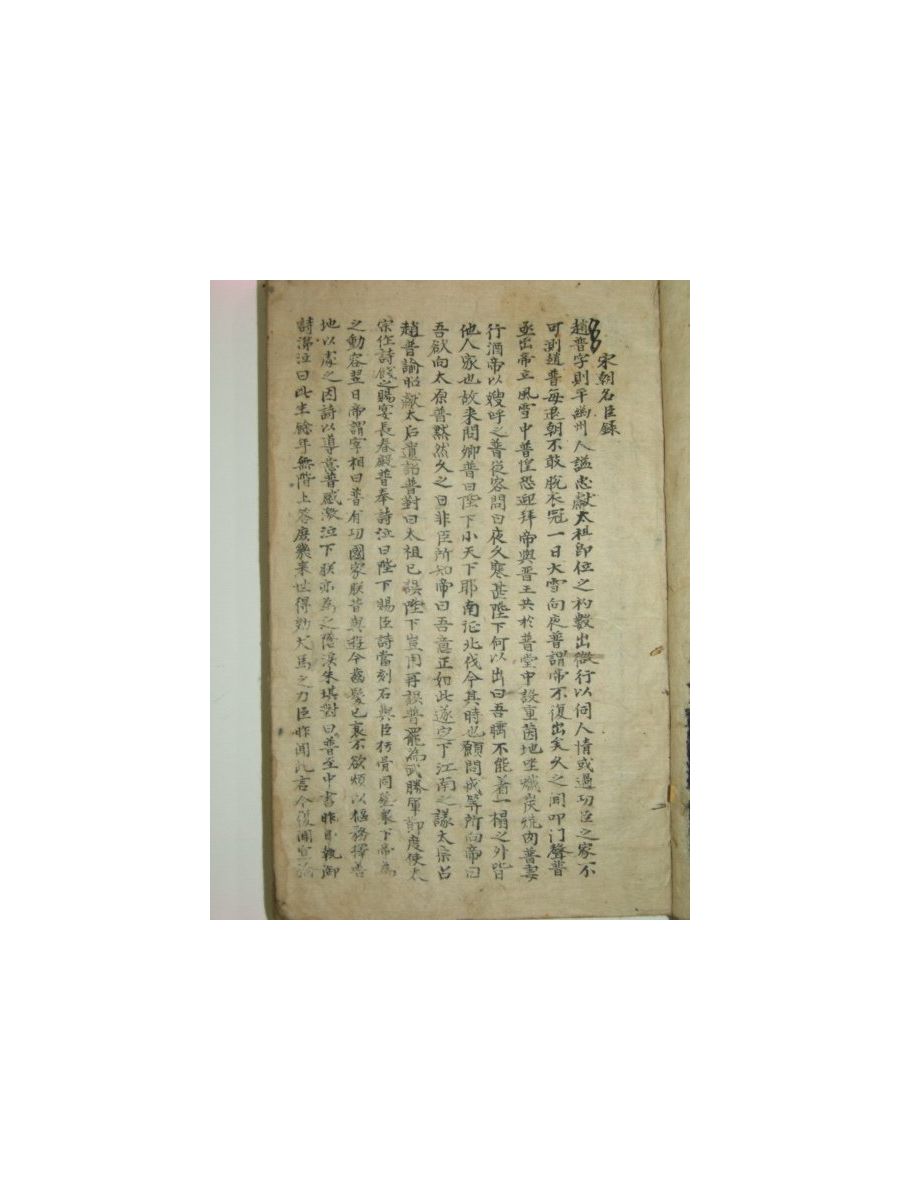 宋朝名臣錄
趙普字則平幽州人謚忠獻太祖卽位之初數出微行以伺人情或過功臣之家不
可測趙普每退朝不敢脫衣冠一日大雪向夜普謂帝不復出矣久之聞叩门聲普
亟出帝立風雪中普惶恐迎拜帝與晉王共於普堂中設重茵地坐熾炭燒肉普妻
行酒帝以嫂呼之普從容問曰夜久寒甚陛下何以出曰吾睡不能着一榻之外皆
他人家也故来問卿普曰陛下小天下耶南征北伐今其時也願聞成算所向帝曰
吾欲向太原普黙然久之曰非臣所知帝曰吾意正如此遂定下江南之議太宗占
趙普諭昭獻太后遺詔普對曰太祖已誤陛下豈用再誤普罷為武勝軍節度使太
宗作詩餞之賜宴長春殿普奉詩泣曰陛下賜臣詩當刻石與臣朽骨同葬泉下帝為
之動容翌日帝謂宰相曰普有功國家朕昔與遊今齒髮已衰不欲煩以樞務擇善
地以處之因詩以導意普感激泣下朕亦為之墮淚宋琪對曰普至中書昨日執御
詩涕泣曰此生餘年無階上答庶幾来世得効犬馬之力臣昨聞此言今復聞宣諭